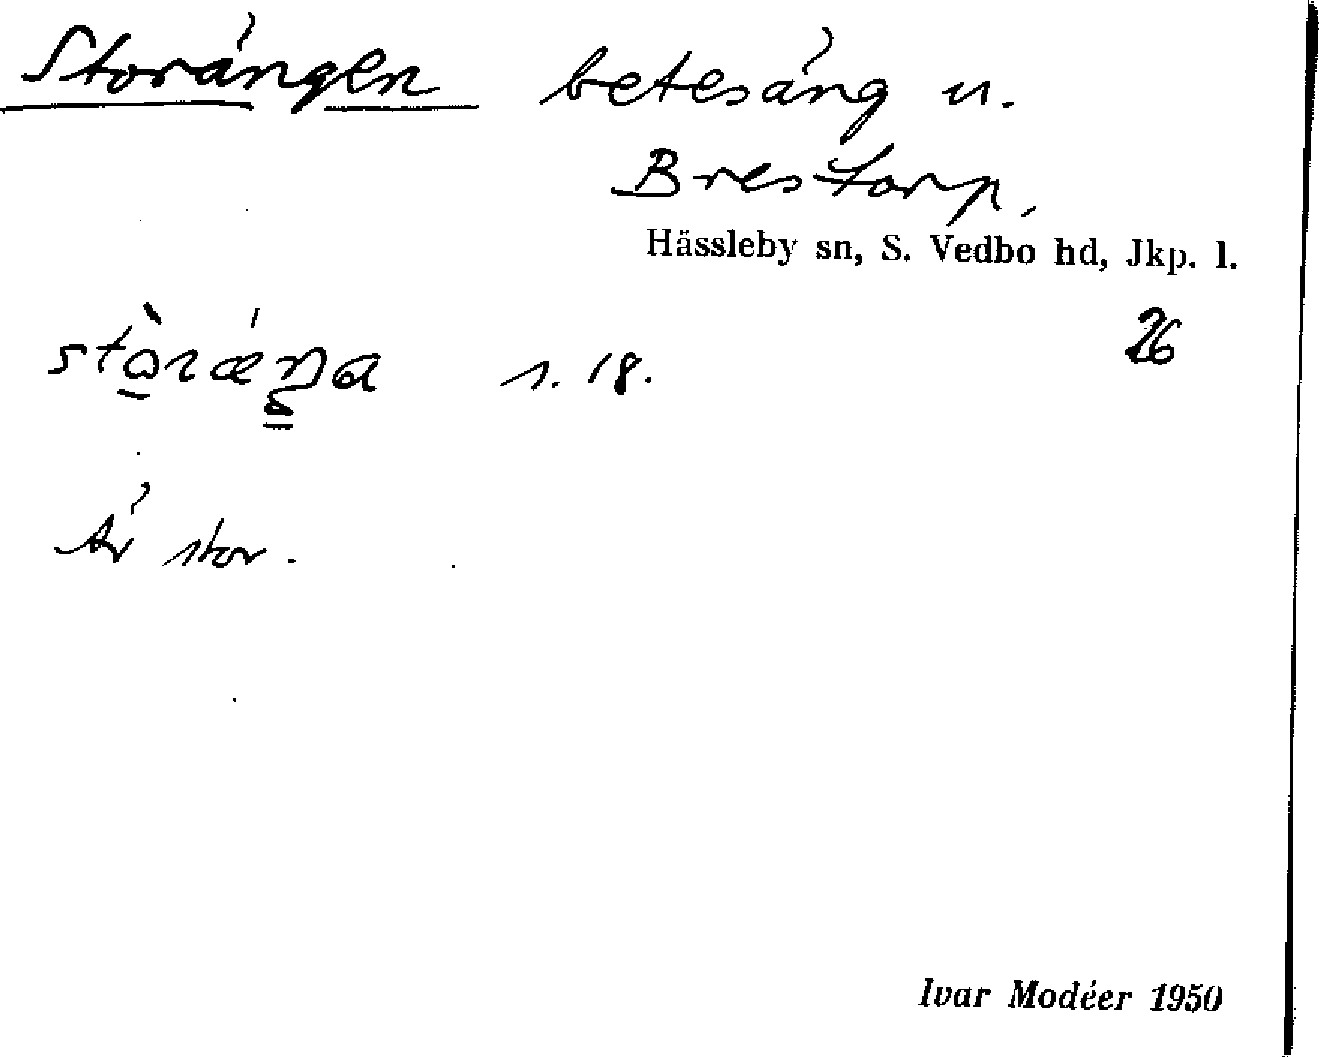 Storängen betesäng u.
Brestorp,
Hässleby sn, S. Vedbo hd, Jkp. l.
26
s. 18.
Är stor.
Ivar Modéer 1950